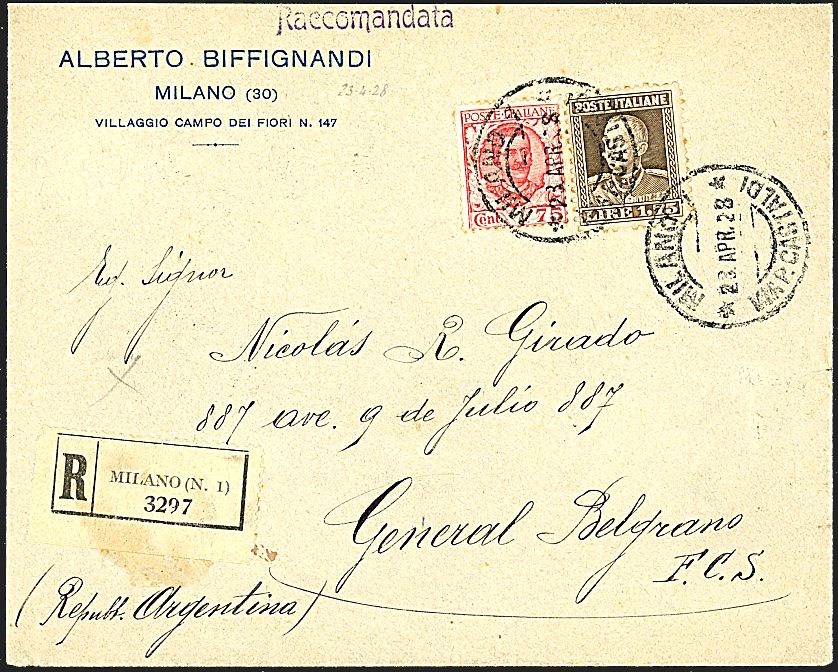 Raccomandata
ALBERTO BIFFIGNANDI
MILANO (30)
VILLAGGIO CAMPO DEI FIORI N. 147
23-4-28
POSTE ITALIANE
Cent. 75
POSTE ITALIANE
LIRE 1,75
MILANO
23 APR. 28
MILANO
VIA P. CASTALDI
23 APR. 28
Eg. Signor
Nicolás R. Girado
887 ave. 9 de Julio 887
R
MILANO (N. 1)
3297
General Belgrano
F.C.S.
(Repubb. Argentina)